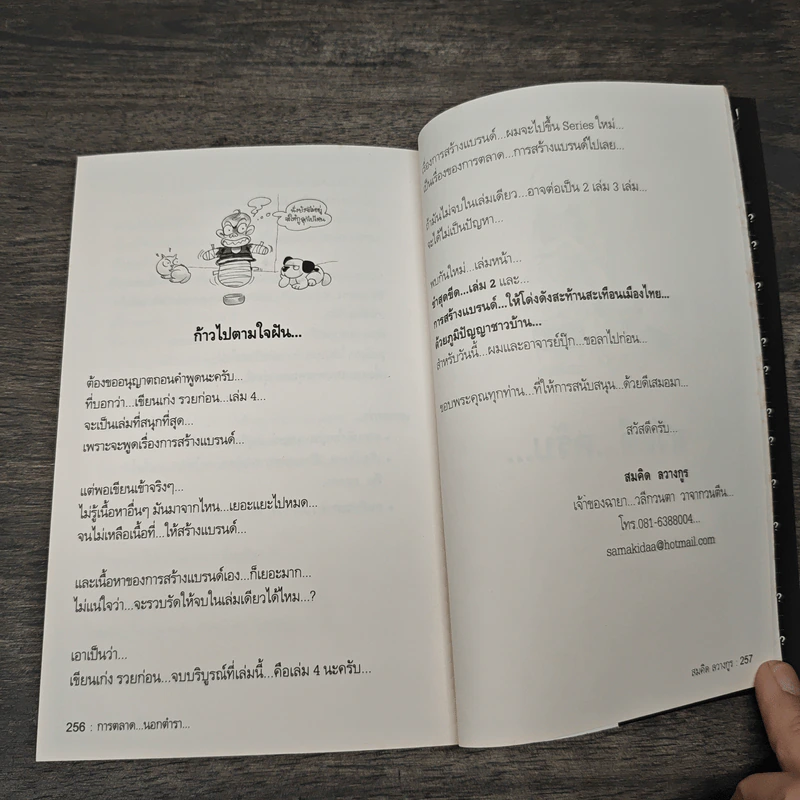 ก้าวไปตามใจฝัน...
ต้องขออนุญาตถอนคำพูดนะครับ...
ที่บอกว่า...เขียนเก่ง รวยก่อน...เล่ม 4...
จะเป็นเล่มที่สนุกที่สุด...
เพราะจะพูดเรื่องการสร้างแบรนด์...
แต่พอเขียนเข้าจริงๆ...
ไม่รู้เนื้อหาอื่นๆ มันมาจากไหน...เยอะแยะไปหมด...
จนไม่เหลือเนื้อที่...ให้สร้างแบรนด์...
และเนื้อหาของการสร้างแบรนด์เอง...ก็เยอะมาก...
ไม่แน่ใจว่า...จะรวบรัดให้จบในเล่มเดียวได้ไหม...?
เอาเป็นว่า...
เขียนเก่ง รวยก่อน...จบบริบูรณ์ที่เล่มนี้...คือเล่ม 4 นะครับ...
256 : การตลาด...นอกตำรา...
เรื่องการสร้างแบรนด์...ผมจะไปขึ้น Series ใหม่...
เป็นเรื่องของการตลาด...การสร้างแบรนด์ไปเลย...
ถ้ามันไม่จบในเล่มเดียว...อาจต่อเป็น 2 เล่ม 3 เล่ม...
จะได้ไม่เป็นปัญหา...
พบกันใหม่...เล่มหน้า...
ขำสุดขีด...เล่ม 2 และ...
การสร้างแบรนด์...ให้โด่งดังสะท้านสะเทือนเมืองไทย...
ด้วยภูมิปัญญาชาวบ้าน...
สำหรับวันนี้...ผมและอาจารย์ปุ๊ก...ขอลาไปก่อน...
ขอบพระคุณทุกท่าน...ที่ให้การสนับสนุน...ด้วยดีเสมอมา...
สวัสดีครับ...
สมคิด ลวางกูร
เจ้าของฉายา...วลีกวนตา วาจากวนตีน...
โทร.081-6388004...
samakidaa@hotmail.com
สมคิด ลวางกูร : 257